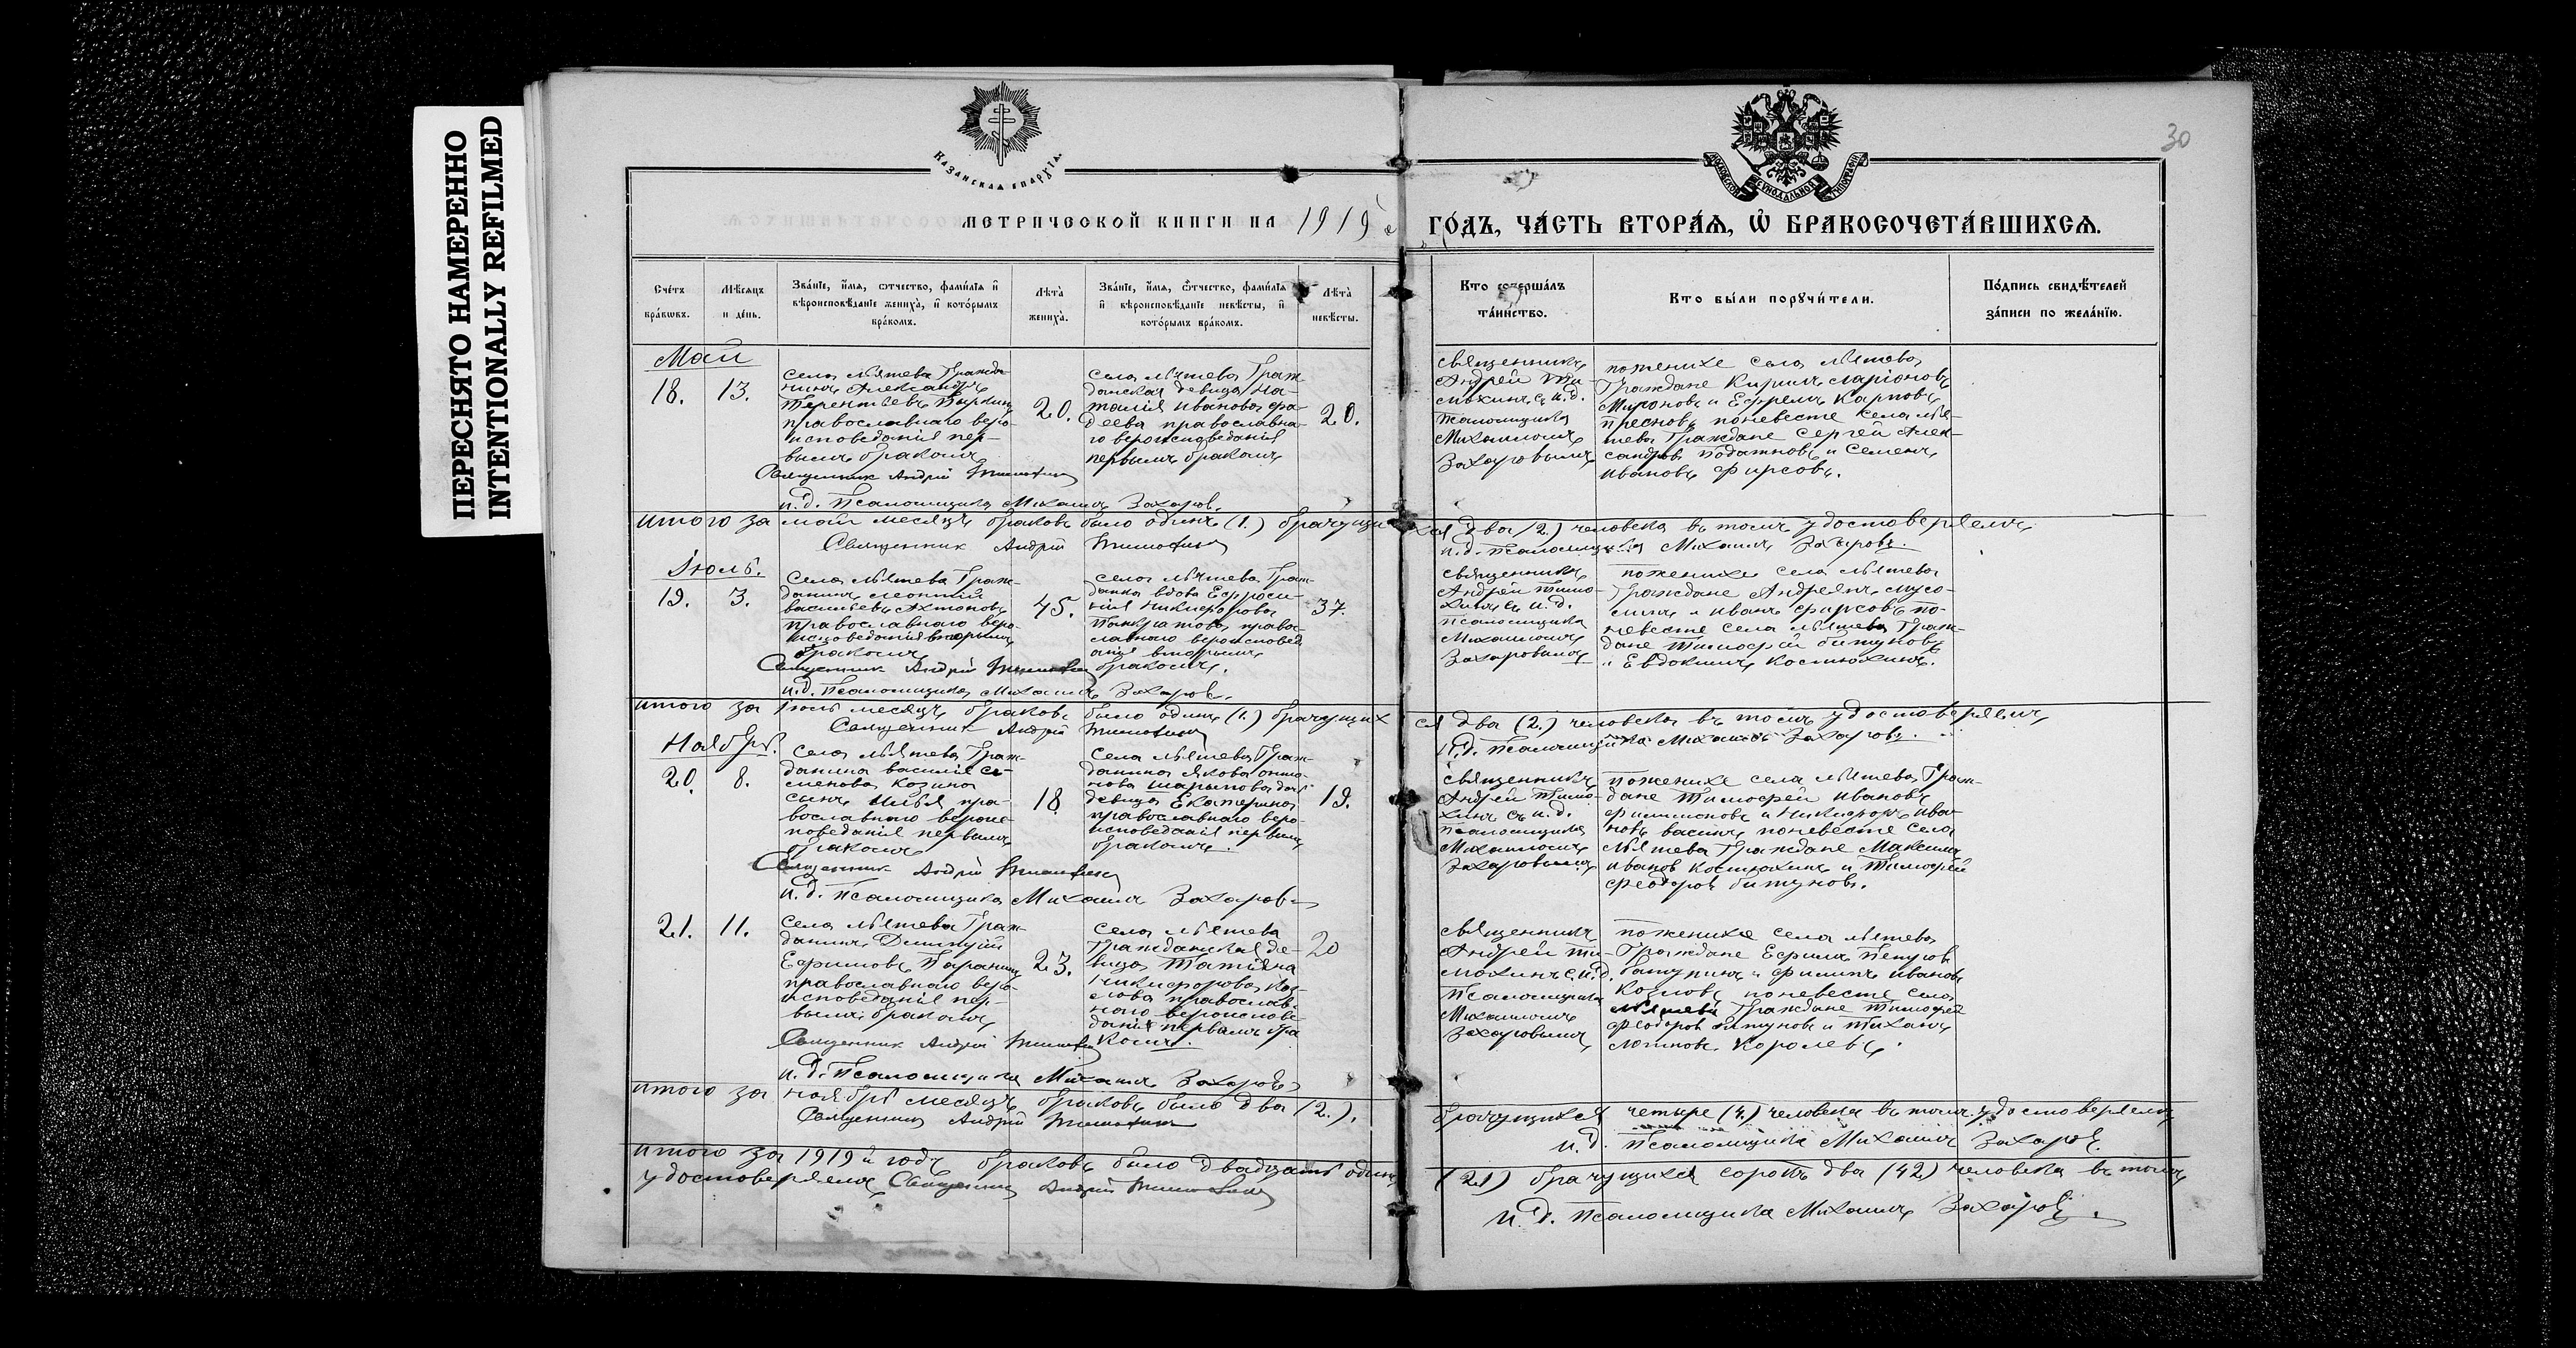 ПЕРЕСНЯТО НАМЕРЕННО
INTENTIONALLY REFILMED
КАЗАНСКАЯ ЕПАРХІА.
МОСКОВСКОЙ СѴНОДАЛЬНОЙ ТѴПОГРАФІИ
30
МЕТРИЧЕСКОЙ КНИГИ НА 1919 й
ГО́ДЪ, ЧА́СТЬ ВТОРА́Я, Ѽ БРАКОСОЧЕТА́ВШИХСЯ.
Сче́тъ бра́кѡвъ.
Мѣ́сяцъ и де́нь.
Зва́нїе, и́мя, ѻ҆́тчество, фами́лїя и҆ вѣроисповѣ́данїе жениха̀, и҆ кото́рымъ бра́комъ.
Лѣта̀ жениха̀.
Зва́нїе, и́мя, ѻ҆́тчество, фами́лїя и҆ вѣроисповѣ́данїе невѣ́сты, и҆ кото́рымъ бра́комъ.
Лѣта̀ невѣ́сты.
Кто соверша́лъ та́инство.
Кто бы́ли порꙋчи́тели.
По́дпись свидѣ́телей за́писи по жела́нїю.
Май
18. 13.
Села Мѣтева Гражда-
нинъ Александръ
Терентьевъ
православнаго веро-
исповеданія пер-
вымъ бракомъ
20.
Села Мѣтева Граж-
данская девица На-
талія Иванова Фа-
деева православна-
го вероисповеданія
первымъ бракомъ
20.
Священникъ
Андрей Ти-
мохинъ с и.д.
псаломщика
Михаиломъ
Захаровымъ
пожениху села Мѣтева
Граждане Кирилъ Ларіоновъ
Мироновъ и Ефремъ Карповъ
Пресновъ поневесте села Мѣ-
тева Граждане Сергей Алек-
сандровъ Податновъ и Семенъ
Ивановъ Фирсовъ.
Священник Андрей Тимохин
и.д. Псаломщика Михаилъ Захаров.
Итого за май месяцъ браковъ было одинъ (1.) брачущи
хся два (2.) человека въ томъ удостоверяемъ
Священник Андрей Тимохин
и.д. псаломщика Михаилъ Захаровъ.
Іюль.
19. 3.
Села Мѣтева Граж-
данинъ Леонтій
Васильевъ
православнаго веро-
исповеданія вторымъ
бракомъ
45.
села Мѣтева Граж-
данка вдова Ефроси-
нія Никифорова
Панкратова право-
славнаго вероисповед
анія вторымъ
бракомъ.
37.
Священникъ
Андрей Тимо-
хинъ съ и.д.
псаломщика
Михаиломъ
Захаровымъ
пожениху села Мѣтева
Граждане Андреянъ Мусо-
линъ и Иванъ Фирсовъ по-
невесте села Мѣтева Граж-
дане Тимофей Битуновъ
и Евдокимъ Костюхинъ.
Священник Андрей Тимохин
и.д. Псаломщика Михаилъ Захаров.
Итого за Іюль месяцъ браковъ было одинъ (1.) брачущих
ся два (2.) человека въ томъ удостоверяемъ
Священник Андрей Тимохин
И.д. Псаломщика Михаилъ Захаровъ.
Ноябрь.
20. 8.
Села Мѣтева Граж-
данина Василія Се-
менова Козина
сынъ Илья пра-
вославнаго вероис-
поведанія первымъ
бракомъ
18
Села Мѣтева Граж-
данина Якова
девица Екатерина
православнаго веро-
исповеданія первымъ
бракомъ.
19.
Священникъ
Андрей Тимо-
хинъ съ и.д.
псаломщика
Михаиломъ
Захаровымъ
пожениху села Мѣтева Граж-
дане Тимофей Ивановъ
Филимоновъ и Никифоръ Ива-
новъ поневесте села
Мѣтева Граждане Максимъ
Ивановъ Костюхинъ и Тимофей
Феодоровъ Битуновъ.
Священник Андрей Тимохин
и.д. Псаломщика Михаилъ Захаровъ
21. 11.
Села Мѣтева Граж-
данинъ Димитрій
Ефимовъ Таранинъ
православнаго веро-
исповеданія пер-
вымъ бракомъ
23.
Села Мѣтева
Гражданская де-
вица Татіяна
Никифорова Коз-
лова православ-
наго вероиспове-
данія первымъ бра
комъ.
20
Священникъ
Андрей Ти-
мохинъ с и.д.
Псаломщика
Михаиломъ
Захаровымъ
пожениху села Мѣтева
Граждане Ефимъ Петровъ
и Филипъ Ивановъ
Козловъ поневесте села
Мѣтева Граждане Тимофей
Феодоровъ Битуновъ и Тиханъ
Логиновъ Королевъ.
Священник Андрей Тимохин
и.д. Псаломщика Михаилъ Захаровъ
Итого за ноябрь месяцъ браковъ было два (2.).
брачущихся четыре (4.) человека въ томъ удостоверяемъ
Священник Андрей Тимохин
и.д. Псаломщика Михаилъ Захаров.
Итого за 1919 й годъ браковъ было двадцать одинъ
(21) брачущихся сорокъ два (42) человека въ томъ
удостоверяемъ Священник Андрей Тимохин
И.д. Псаломщика Михаилъ Захаровъ.